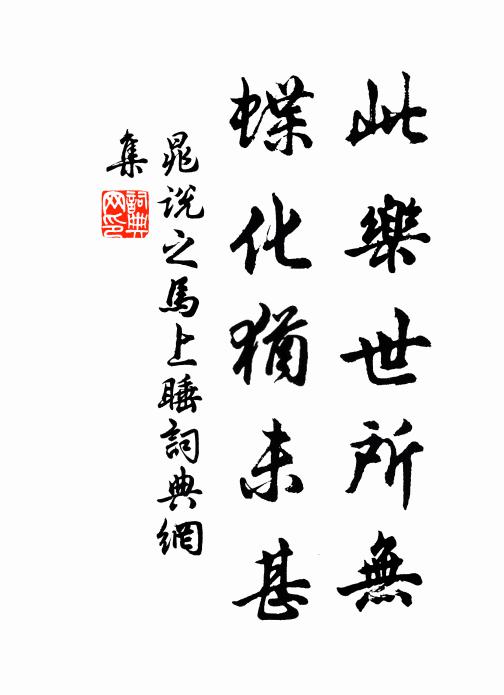 此樂世所無
蝶化猶未甚
晁說之馬上睡詞典網
集
詞典
网印